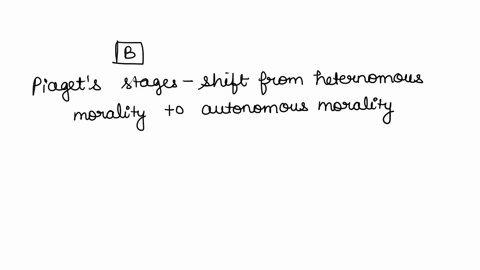 B
Piaget's stages - shift from heternomous
morality to autonomous morality